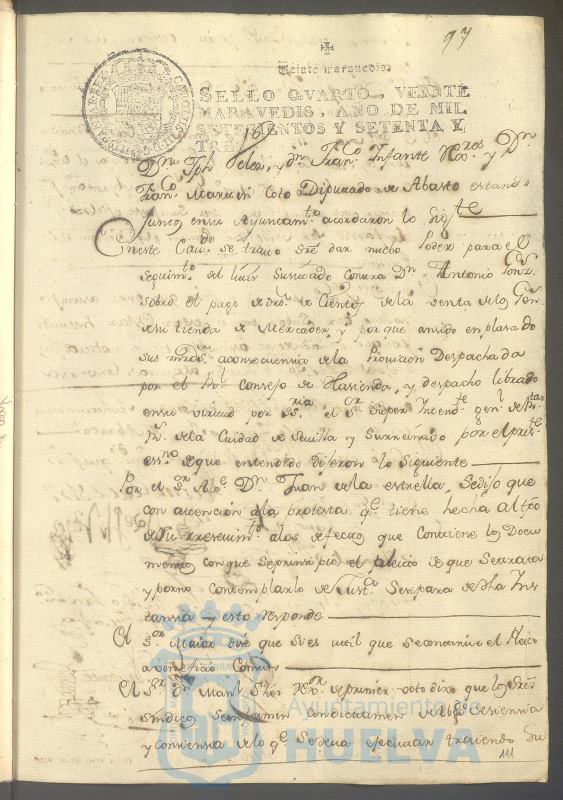 97
Veinte maravedis.
SELLO QVARTO, VEINTE
MARAVEDIS, AÑO DE MIL
SETECIENTOS Y SETENTA Y
TRES
Dn Jph Velez, y dn Franco Infante Rexres y Dn
Franco Marttin Coto Diputado de Abasto estando
Juntos en su Ayuntamto acordaron lo Sigte
En este Cavdo se trato sre dar nuebo Poder para el
seguimto del litis suscitado contra Dn Antonio Gonz.
sobre el pago de dros de Cientos de la venta de los Gens
de su tienda de Mercader, y por que an sido emplasado
sus mrds a consecuencia de la Provicion Despachada
por el Rl Consejo de Hasienda, y despacho librado
en su virtud por Ssria el Sor Super Intendte genl de Rtas
Rs de la Ciudad de Sevilla y por el preste
essno de que entendido dijeron lo Siguiente
Por el Sor Alce Dn Juan de la estrella, se dijo que
con atencion a la protesta qe tiene hecha al tpo
de su a los efectos que Contiene los Docu
mentos con que se prinsipio el pleito de que se trata
y por no Contemplarlo de Justa se separa de dha Ins
tansia y esto responde
El Sor Maior dixo que si es util que se continue el Pleito
a veneficio Comun
El Sr Dn Manl Rexor de primer voto dixo que los Sres
sindicos con dictamen de Abgdo de siensia
y consiensia de lo qe se deva ejecutar trayendo su
111
Ayuntamiento de
HUELVA